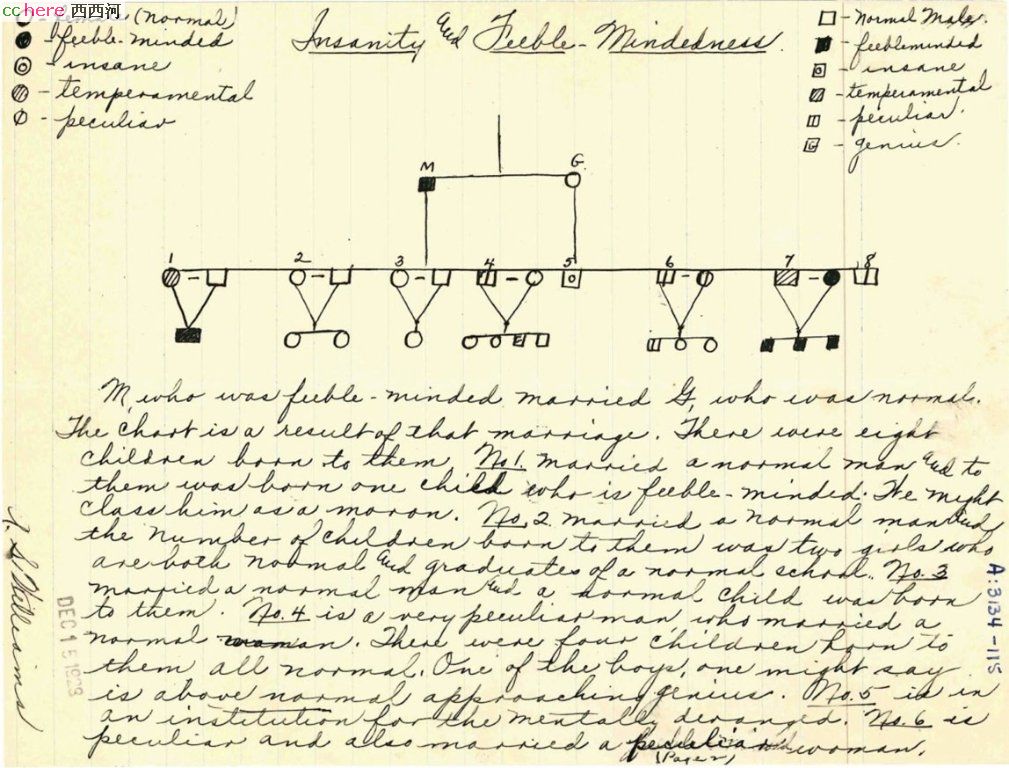 cchere 西西河
(normal)
- feeble-minded
- insane
- temperamental
- peculiar
Insanity and Feeble-Mindedness.
- normal Male.
- feebleminded
- insane
- temperamental
- peculiar.
- genius.
M G
1 2 3 4 5 6 7 8
M, who was feeble-minded married G, who was normal.
The chart is a result of that marriage. There were eight
children born to them. No 1. married a normal man and to
them was born one child who is feeble-minded. We might
class him as a moron. No. 2 married a normal man and
the number of children born to them was two girls who
are both normal and graduates of a normal school. No. 3
married a normal man and a normal child was born
to them. No. 4 is a very peculiar man who married a
normal woman. There were four children born to
them all normal. One of the boys, one might say
is above normal approaching genius. No. 5 is in
an institution for the mentally deranged. No. 6 is
peculiar and also married a peculiar woman.
(Paper)
A:3134-115
DEC 15 1923
Williams